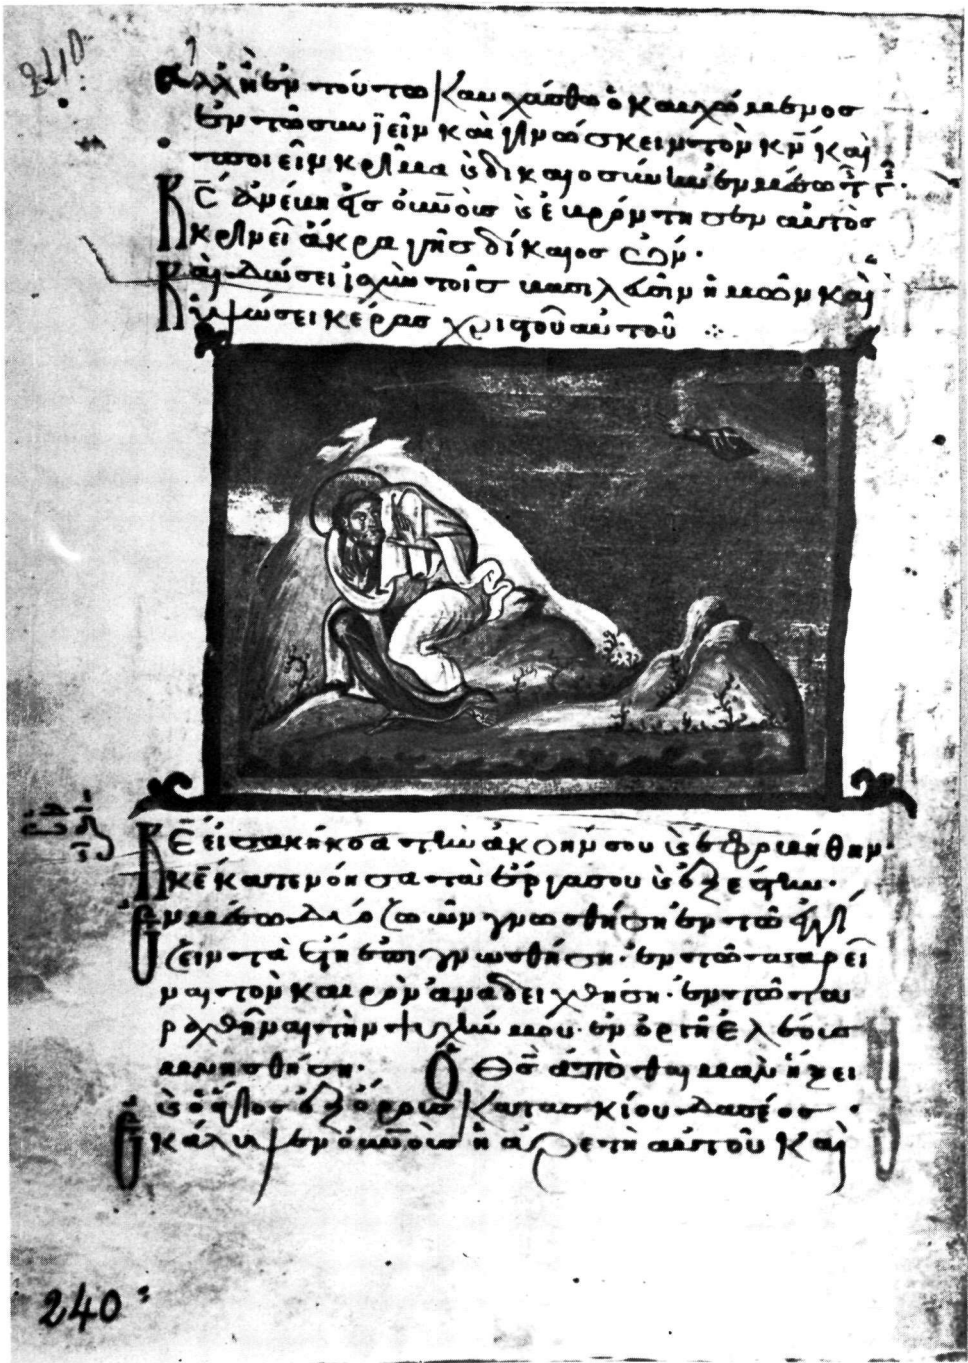 240
ἀλλ' ἢ ἐν τούτω καυχάσθω ὁ καυχώμενος
ἐν τῶ συνιεῖν καὶ γινώσκειν τὸν κν καὶ
ποιεῖν κρῖμα καὶ δικαιοσύνην ἐν μέσω τῆς γῆς.
Κς ἀνέβη εἰς οὐνοὺς καὶ ἐβρόντησεν αὐτὸς
κρινεῖ ἄκρα γῆς δίκαιος ὤν.
Καὶ δώσει ἰσχὺν τοῖς βασιλεῦσιν ἡμῶν καὶ
ὑψώσει κέρας χριστοῦ αὐτοῦ
Κε εἰσακήκοα τὴν ἀκοήν σου καὶ ἐφοβήθην.
κε κατενόησα τὰ ἔργα σου καὶ ἐξέστην.
Ἐν μέσω δύο ζώων γνωσθήση ἐν τῶ ἐγγί
ζειν τὰ ἔτη ἐπιγνωσθήση. ἐν τῶ παρεῖ
ναι τὸν καιρὸν ἀναδειχθήση. ἐν τῶ τα
ραχθῆναι τὴν ψυχήν μου. ἐν ὀργῆ ἐλέους
μνησθήση. Ὁ Θς ἀπὸ θαιμὰν ἥξει
καὶ ὁ ἅγιος ἐξ ὄρους κατασκίου δασέος.
Ἐκάλυψεν οὐνοὺς ἡ ἀρετὴ αὐτοῦ καὶ
240